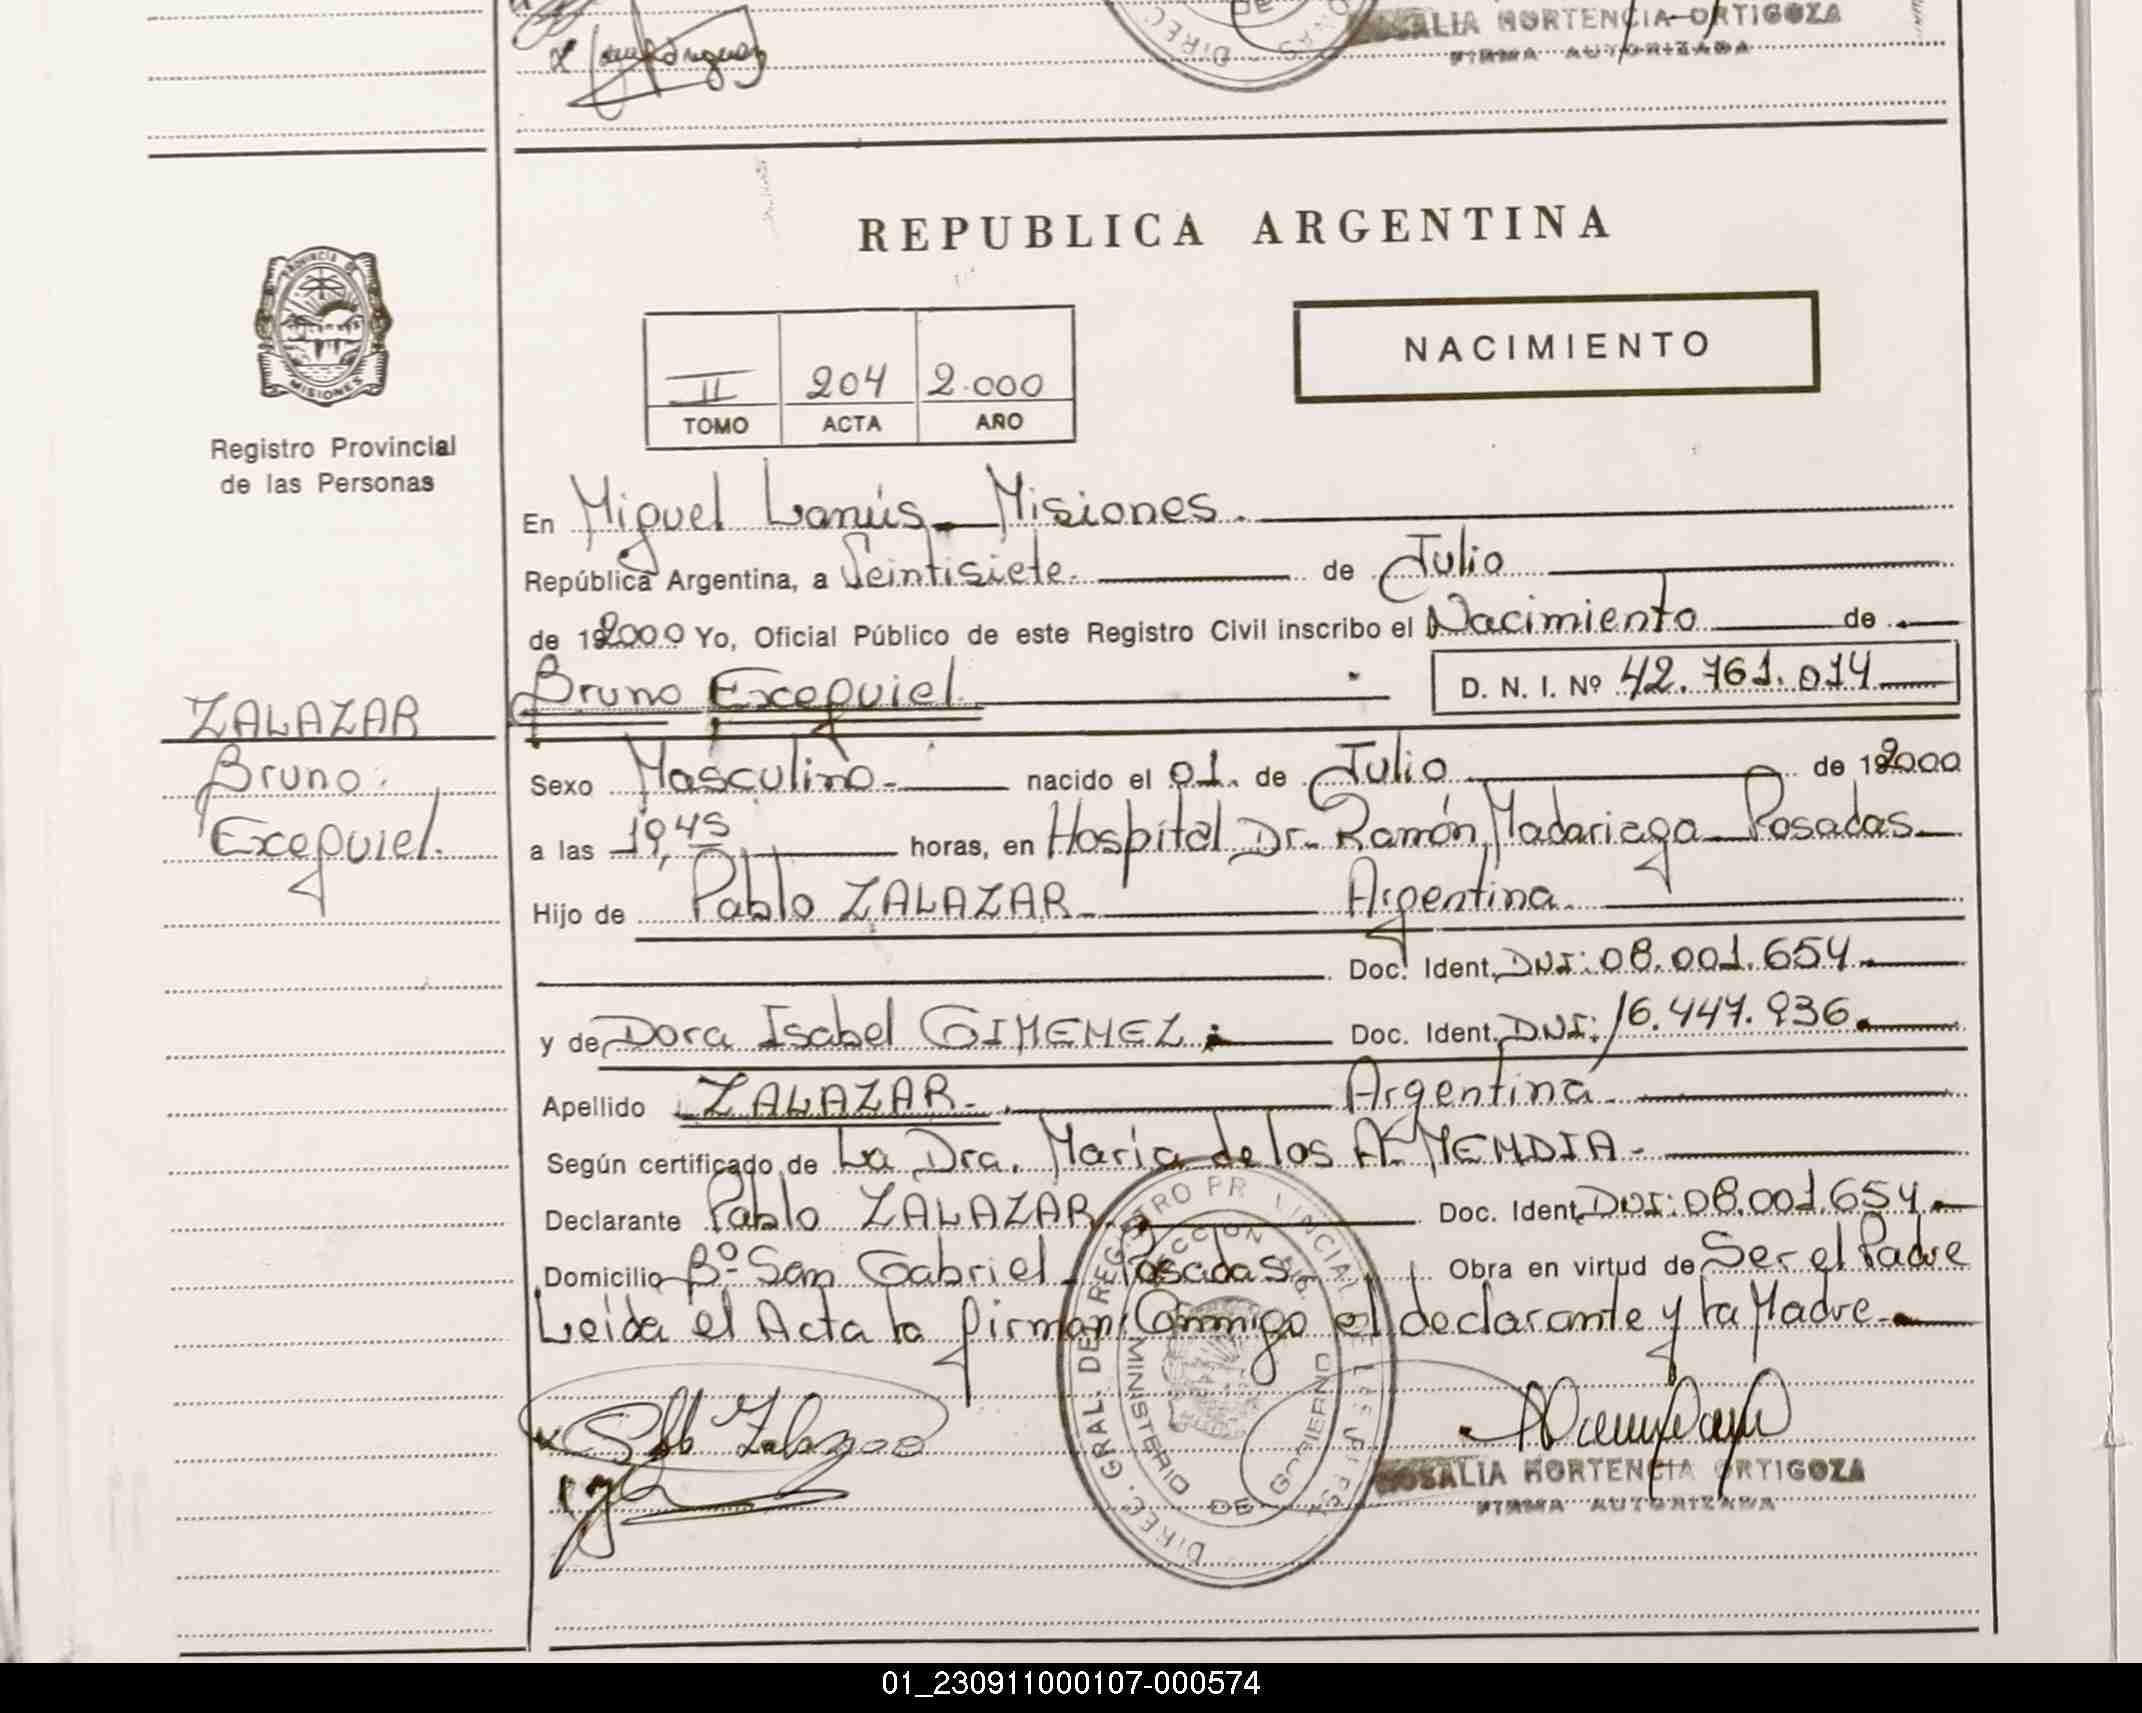 ROSALIA HORTENCIA ORTIGOZA
FIRMA AUTORIZADA
REPUBLICA ARGENTINA
PROVINCIA DE
MISIONES
NACIMIENTO
II 204 2.000
TOMO ACTA AÑO
Registro Provincial
de las Personas
En Miguel Lanús - Misiones.
República Argentina, a Veintisiete. de Julio
de 192000 Yo, Oficial Público de este Registro Civil inscribo el Nacimiento de
Bruno Excequiel. D. N. I. Nº 42.761.014
ZALAZAR
Bruno
Excequiel.
Sexo Masculino. nacido el 01. de Julio de 192000
a las 19,45 horas, en Hospital Dr. Ramón Madariaga - Posadas
Hijo de Pablo ZALAZAR Argentina.
Doc. Ident. DNI: 08.001.654.
y de Dora Isabel GIMENEZ. Doc. Ident. DNI: 16.447.936.
Apellido ZALAZAR. Argentina.
Según certificado de La Dra. María de los A. MENDIA.
Declarante Pablo ZALAZAR Doc. Ident. DNI: 08.001.654.
Domicilio Bº San Gabriel - Posadas. Obra en virtud de Ser el Padre
Leída el Acta la firman Conmigo el declarante y la Madre.
DIREC. GRAL. DE REGISTRO PROVINCIAL DE LAS PERSONAS
MINISTERIO DE GOBIERNO
ROSALIA HORTENCIA ORTIGOZA
FIRMA AUTORIZADA
01_230911000107-000574